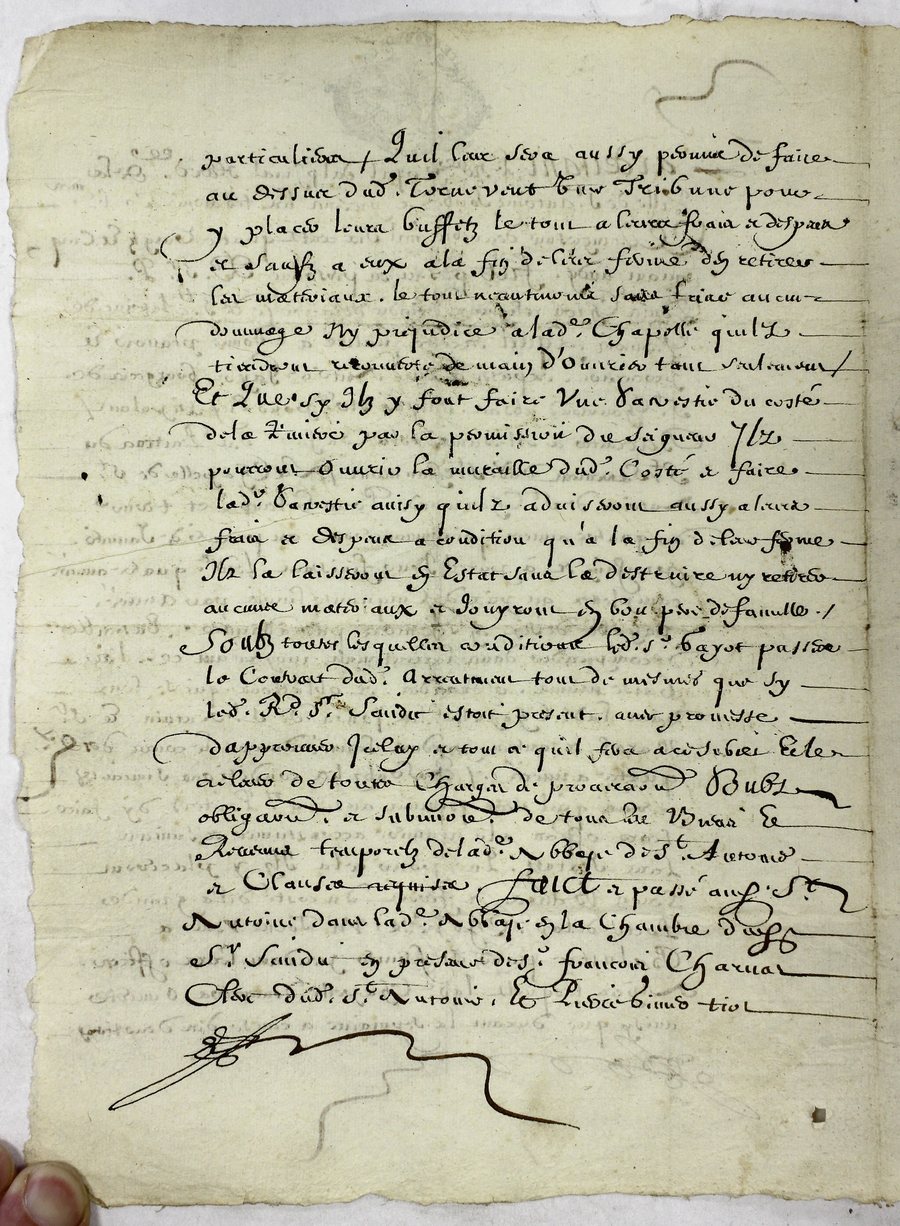 particuliers / Quil leur sera aussy permis de faire
au dessus dud. Tornevent Une Tribune pour
y placer leurs buffetz le tout a leurs frais et despans
et sauf a eux a la fin de leur ferme den retirer
les materiaux. le tout neantmoins sans faire aucun
dommage Ny prejudice a lad.e Chapelle quilz
tiendront recouverte de main d'Ouvrier tant seulement /
Et Que sy Ilz y font faire Une Sacrestie du costé
de la par la permission du seigneur Ilz
pourront Ouvrir la muraille dud. Costé et faire
lad.e Sacrestie ainsy quilz adviseront aussy a leurs
frais et despens a condition qu'à la fin de leur ferme
Ilz la laisseront en Estat sans la destruire ny retirer
aucunes materiaux et Jouyront en bon pere de famille /
Soubz toutes lesquelles conditions led. s.r bayot passera
le Contrat dud. Arrentement tout de mesmes que sy
led. R.d s.r Sandic estoit present. avec promesse
dapprouver Icelluy et tout ce quil fera a ce subiet Et le
relever de toutes Charges de procura.on Soubz
obliga.on et submi.on de tous les Biens Et
Revenus temporelz de lad.e Abbaye de S.t Antoine
et Clauses requises Faict et passé aud. S.t
Antoine dans lad.e Abbaye en la Chambre dud.
S.r Sandic en presence de s.r francois Charvat
Clerc dud. S.t Antoine. Et Pierre